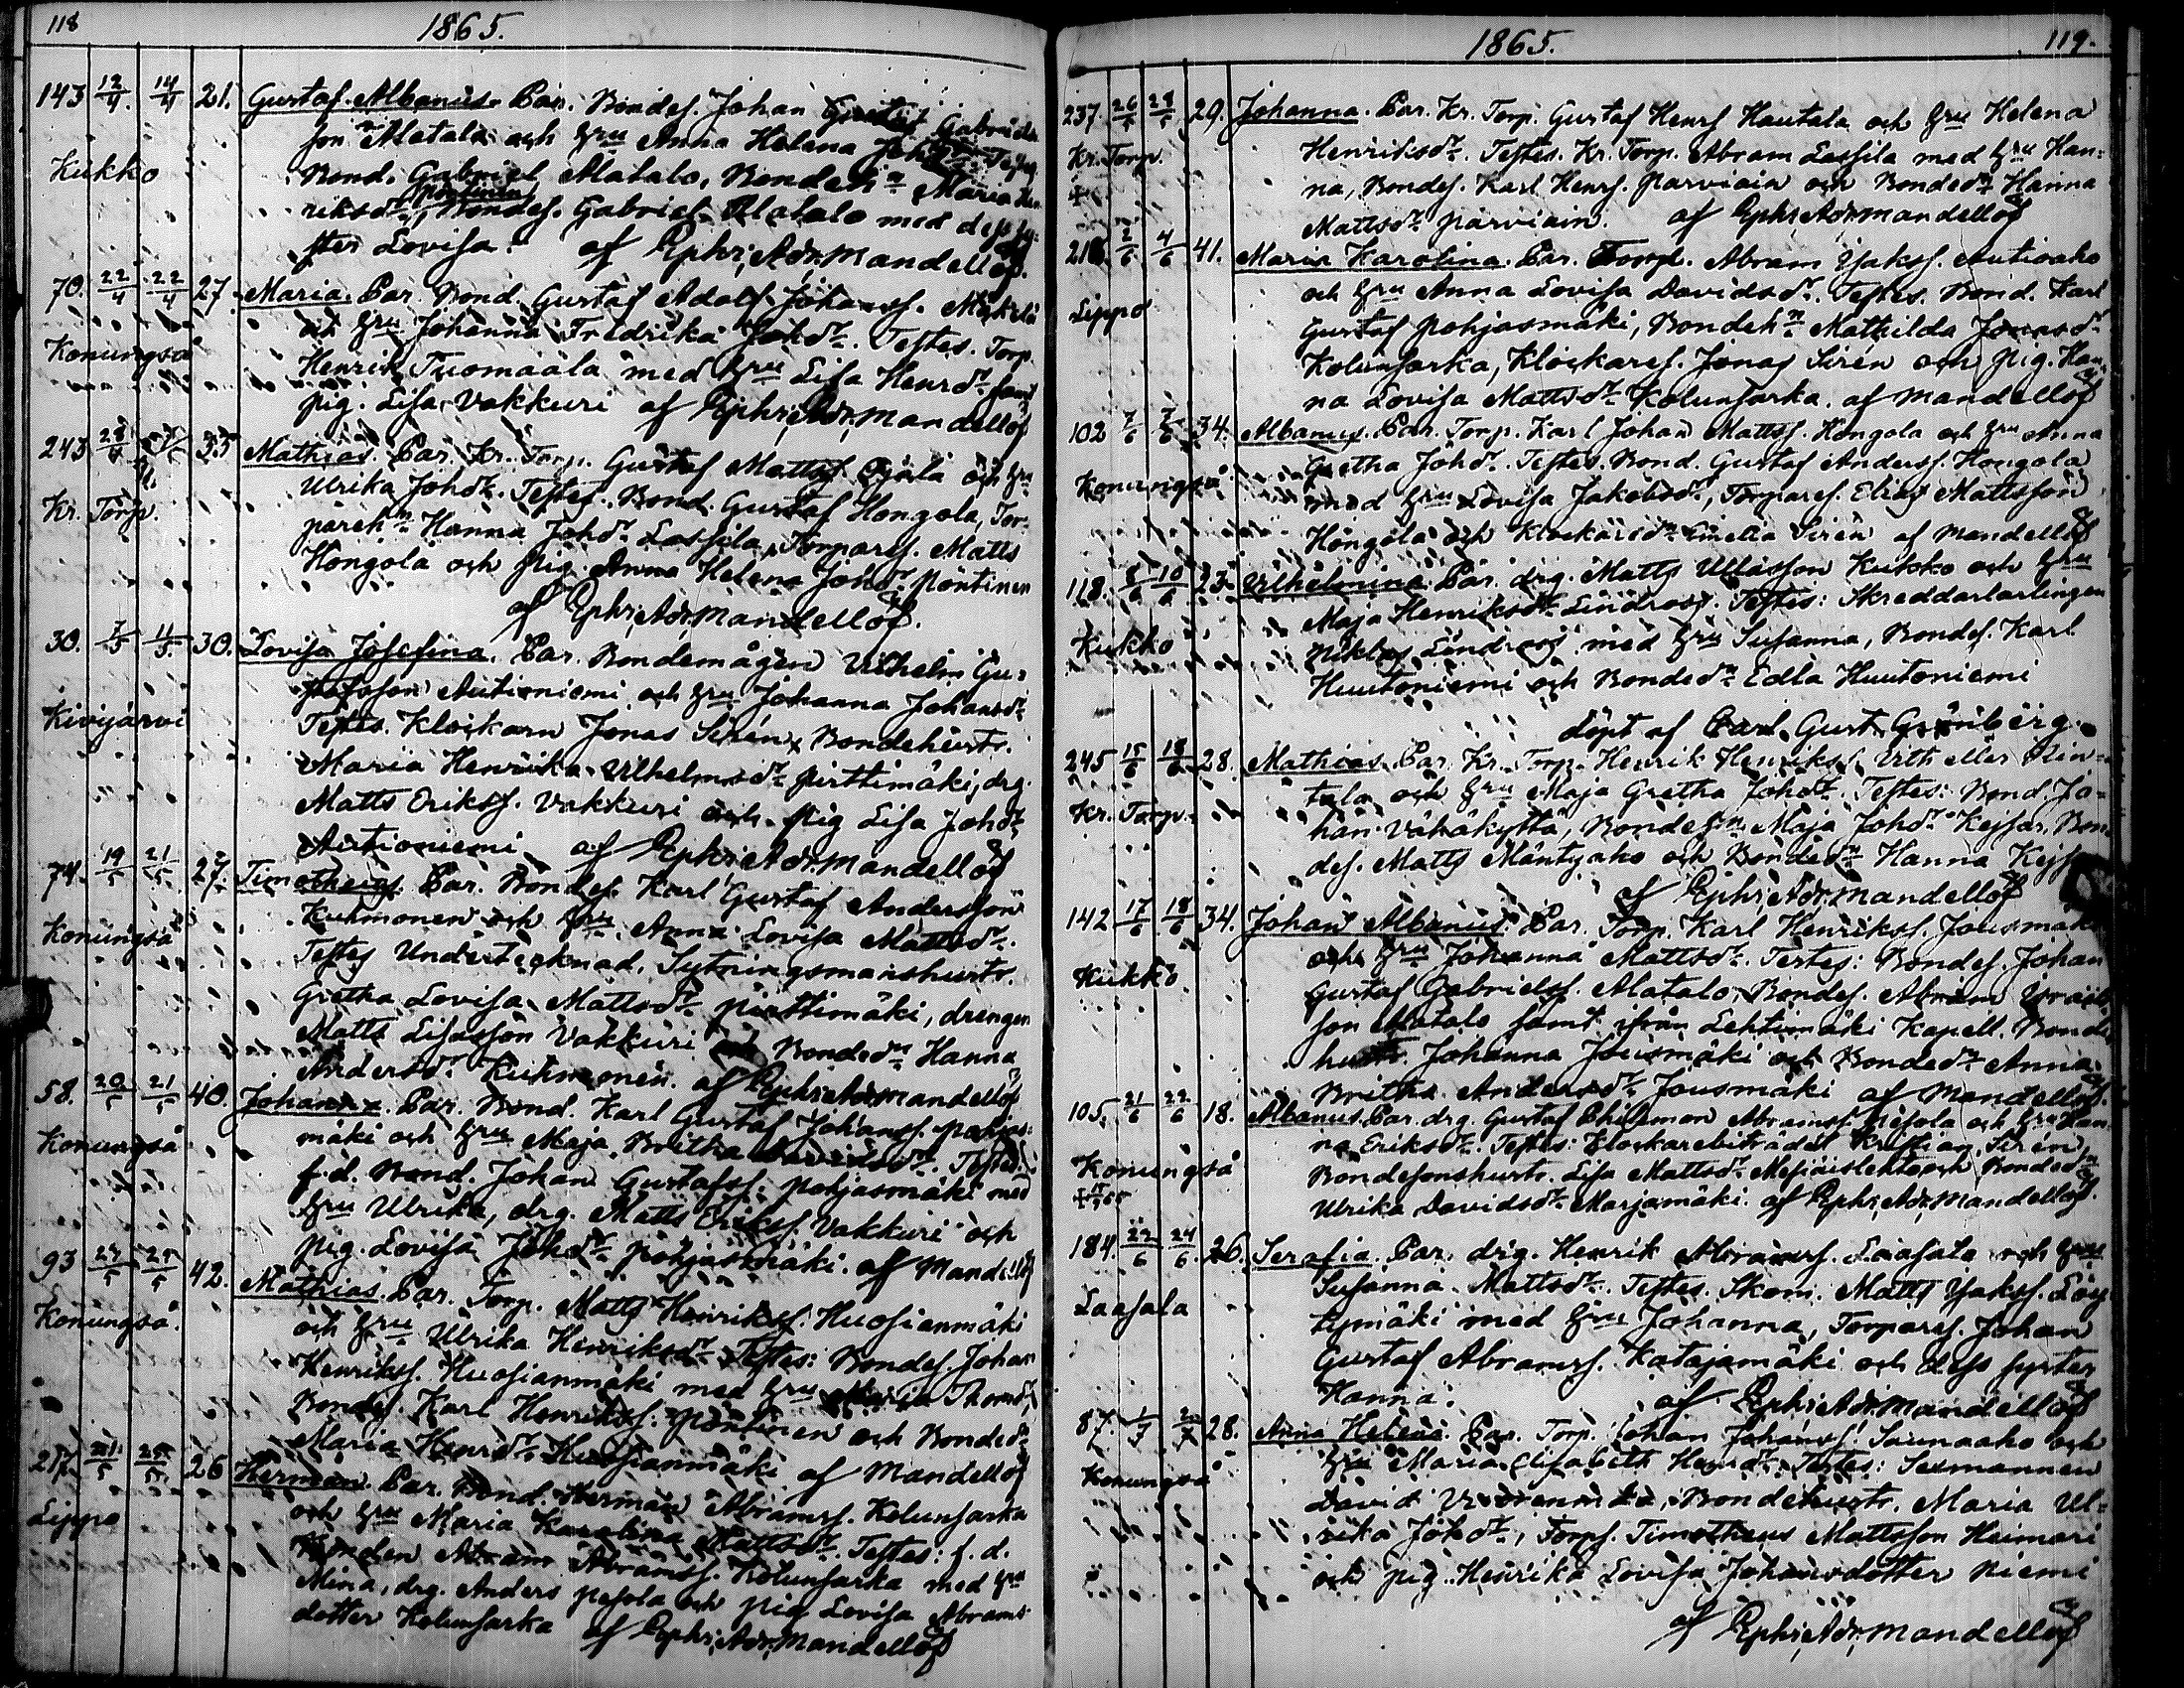 118
1865.
143 12/4 14/4 21. Gustaf Albanus. Par. Bondes. Johan Gabriels
son Alatalo och hru Anna Helena Johdr Testes
Kukko Bond. Gabriel Alatalo, Bondehn Maria Hen
riksdr, Bondes. Gabriel Alatalo med dess sy-
ster Lovisa. af Ephr. Adr. Mandellöf.
70. 22/4 22/4 27. Maria. Par. Bond. Gustaf Adolf Johanss. Mäkelä
och hru Johanna Fredrika Johdr. Testes. Torp.
Konungså Henrik Tuomaala med hru Lisa Henrdr samt
pig. Lisa Vakkuri af Ephr. Adr. Mandellöf
243 35 Mathias. Par. Kr. Torp. Gustaf Mattss. Ojala och hru
Ulrika Johdr. Testes. Bond. Gustaf Hongola, Tor-
Kr. Torp. parehn Hanna Johdr Lassila, Torpares. Matts
Hongola och Pig. Anna Helena Johdr Pöntinen
af Ephr. Adr. Mandellöf.
30. 7/5 11/5 30. Lovisa Josefina. Par. Bondemågen Vilhelm Gu-
stafsson Autioniemi och hru Johanna Johansdr
Kivijärvi Testes. Klockarn Jonas Sirén, Bondehustr.
Maria Henrika Vilhelmsdr Pirttimäki, drg.
Matts Erikss. Vakkuri och Pig Lisa Johdr
Autioniemi af Ephr. Adr. Mandellöf
74. 19/5 21/5 27. Timotheus. Par. Bondes. Karl Gustaf Andersson
Kuhmonen och hru Anna Lovisa Mattsdr.
Konungså Testes Undertecknad, Sytningsmanshustr.
Gretha Lovisa Mattsdr Pirttimäki, drengen
Matts Lisasson Vakkuri och Bondedn Hanna
Andersdr Kuhmonen. af Ephr. Adr. Mandellöf
58. 20/5 21/5 40. Johanna. Par. Bond. Karl Gustaf Johanss. Pohjas-
mäki och hru Maja Britha Davidsdr. Testes.
Konungså f.d. Bond. Johan Gustafss. Pohjasmäki med
hru Ulrika, drg. Matts Erikss. Vakkuri och
pig. Lovisa Johdr Pohjasmäki. af Mandellöf
93 25/5 42. Mathias. Par. Torp. Matts Henrikss. Huosianmäki
Konungså. och hru Ulrika Henriksdr Testes: Bondes. Johan
Henrikss. Huosianmäki med hru Maria Thomdr,
Bondes. Karl Henrikss. Pöntinen och Bondedn
Maria Henrdr Huosianmäki af Mandellöf
25/5 26 Herman. Par. Bond. Herman Abramss. Kolunsarka
Lippo och hru Maria Karolina Mattsdr. Testes: f.d.
Bonden Abram Abramss. Kolunsarka med hru
Mina, drg. Anders Pesola och pig Lovisa Abrams
dotter Kolunsarka af Ephr. Adr. Mandellöf
1865. 119.
237. 26/5 28/5 29. Johanna. Par. Kr. Torp. Gustaf Henrs Hautala och hru Helena
Kr. Torp. Henriksdr. Testes. Kr. Torp. Abram Lassila med hru Han-
na, Bondes. Karl Henrs. Parviain och Bondedn Hanna
Mattsdr Parviain. af Ephr. Adr. Mandellöf
2/6 4/6 41. Maria Karolina. Par. Torp. Abram Isakss. Autioaho
Lippo och hru Anna Lovisa Davidsdr. Testes. Bond. Karl
Gustaf Pohjasmäki, Bondehn Mathilda Jonasdr
Kolunsarka, Klockares. Jonas Sirén och pig. Han-
na Lovisa Mattsdr Kolunsarka. af Mandellöf
102 7/6 7/6 34. Albanus. Par. Torp. Karl Johan Mattss. Hongola och hru Anna
Gretha Johdr. Testes. Bond. Gustaf Anderss. Hongola
Konungså med hru Lovisa Jakobsdr, Torpares. Elias Mattsson
Hongola och Klockaredn Emelia Sirén af Mandellöf
118. 8/6 10/6 23. Vilhelmina Par. drg. Matts Ullasson Kukko och hru
Maja Henriksdr Lindross. Testes: Skreddarlärlingen
Kukko Niklas Lindross med hru Susanna, Bondes. Karl
Huutoniemi och Bondedn Edla Huutoniemi
Döpt af Carl Gust. Grönberg.
245 15/6 18/6 28. Mathias. Par. Kr. Torp. Henrik Henrikss. Urth eller Rin-
tala och hru Maja Gretha Johdr. Testes: Bond. Jo-
Kr. Torp. han Vähäkyttä, Bondehn Maja Johdr Kejsar, Bon
des. Matts Mäntyaho och Bondedn Hanna Kejs
af Ephr. Adr. Mandellöf
142 17/6 18/6 34. Johan Albanus. Par. Torp. Karl Henrikss. Jousmäki
och hru Johanna Mattsdr. Testes: Bondes. Johan
Kukko. Gustaf Gabrielss. Alatalo, Bondes. Abram
son Alatalo samt ifrån Lehtimäki Kapell. Bonde
hustr. Johanna Jousmäki och Bondedn Anna
Britha Andersdr Jousmäki af Mandellöf.
105. 21/6 22/6 18. Albanus. Par. drg. Gustaf Philemon Abramss. Pesola och hru Han
na Eriksdr. Testes: Klockarebiträdet Kristian Sirén,
Konungså Bondesonshustr. Lisa Mattsdr och Bondedn
Ulrika Davidsdr Marjamäki. af Ephr. Adr. Mandellöf.
184. 22/6 24/6 26. Serafia. Par. drg. Henrik Abramss. Laasala och hru
Susanna Mattsdr. Testes. Skom. Matts Isakss. Löy
Laasala tymäki med hru Johanna, Torpares. Johan
Gustaf Abramss. Katajamäki och dess syster
Hanna. af Ephr. Adr. Mandellöf
87. 1/7 2/7 28. Anna Helena. Par. Torp. Johan Johanss. Saunaaho och
hru Maria Elisabeth Henrdr. Testes: Sexmannen
Konungså David Vuorenmaa, Bondehustr. Maria Ul-
rika Johdr, Torps. Timotheus Mattsson Heimari
och pig. Henrika Lovisa Johansdotter Niemi
af Ephr. Adr. Mandellöf